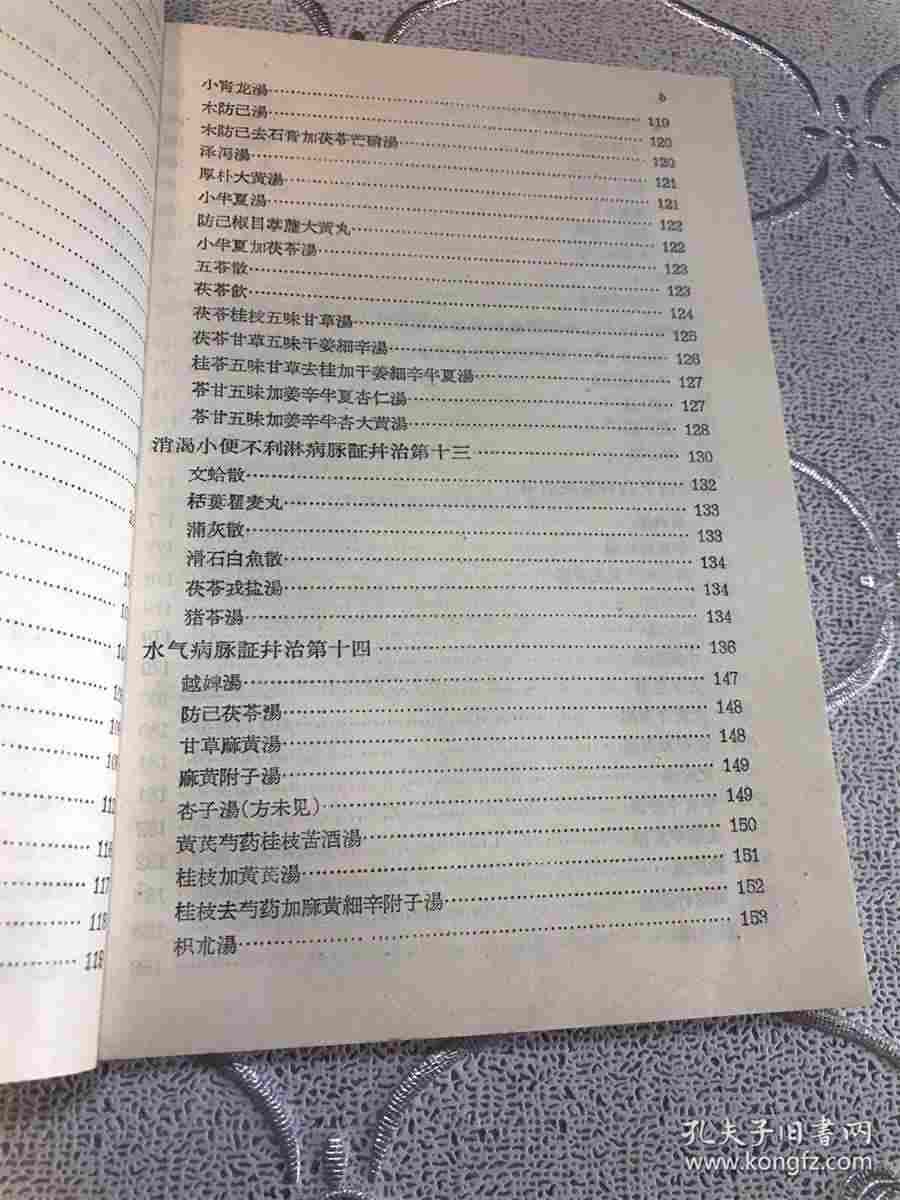 5
小青龙湯 119
木防己湯 120
木防己去石膏加茯苓芒硝湯 120
泽泻湯 121
厚朴大黄湯 121
小半夏湯 122
防己椒目葶藶大黄丸 122
小半夏加茯苓湯 123
五苓散 123
茯苓飲 124
茯苓桂枝五味甘草湯 125
茯苓甘草五味干姜細辛湯 126
桂苓五味甘草去桂加干姜細辛半夏湯 127
苓甘五味加姜辛半夏杏仁湯 127
苓甘五味加姜辛半杏大黄湯 128
消渴小便不利淋病脈証幷治第十三 130
文蛤散 132
栝蔞瞿麦丸 133
蒲灰散 133
滑石白魚散 134
茯苓戎盐湯 134
猪苓湯 134
水气病脈証幷治第十四 136
越婢湯 147
防己茯苓湯 148
甘草麻黄湯 148
麻黄附子湯 149
杏子湯(方未见) 149
黄芪芍药桂枝苦酒湯 150
桂枝加黄芪湯 151
桂枝去芍药加麻黄細辛附子湯 152
枳朮湯 153
116
117
118
孔夫子旧書网
www.kongfz.com